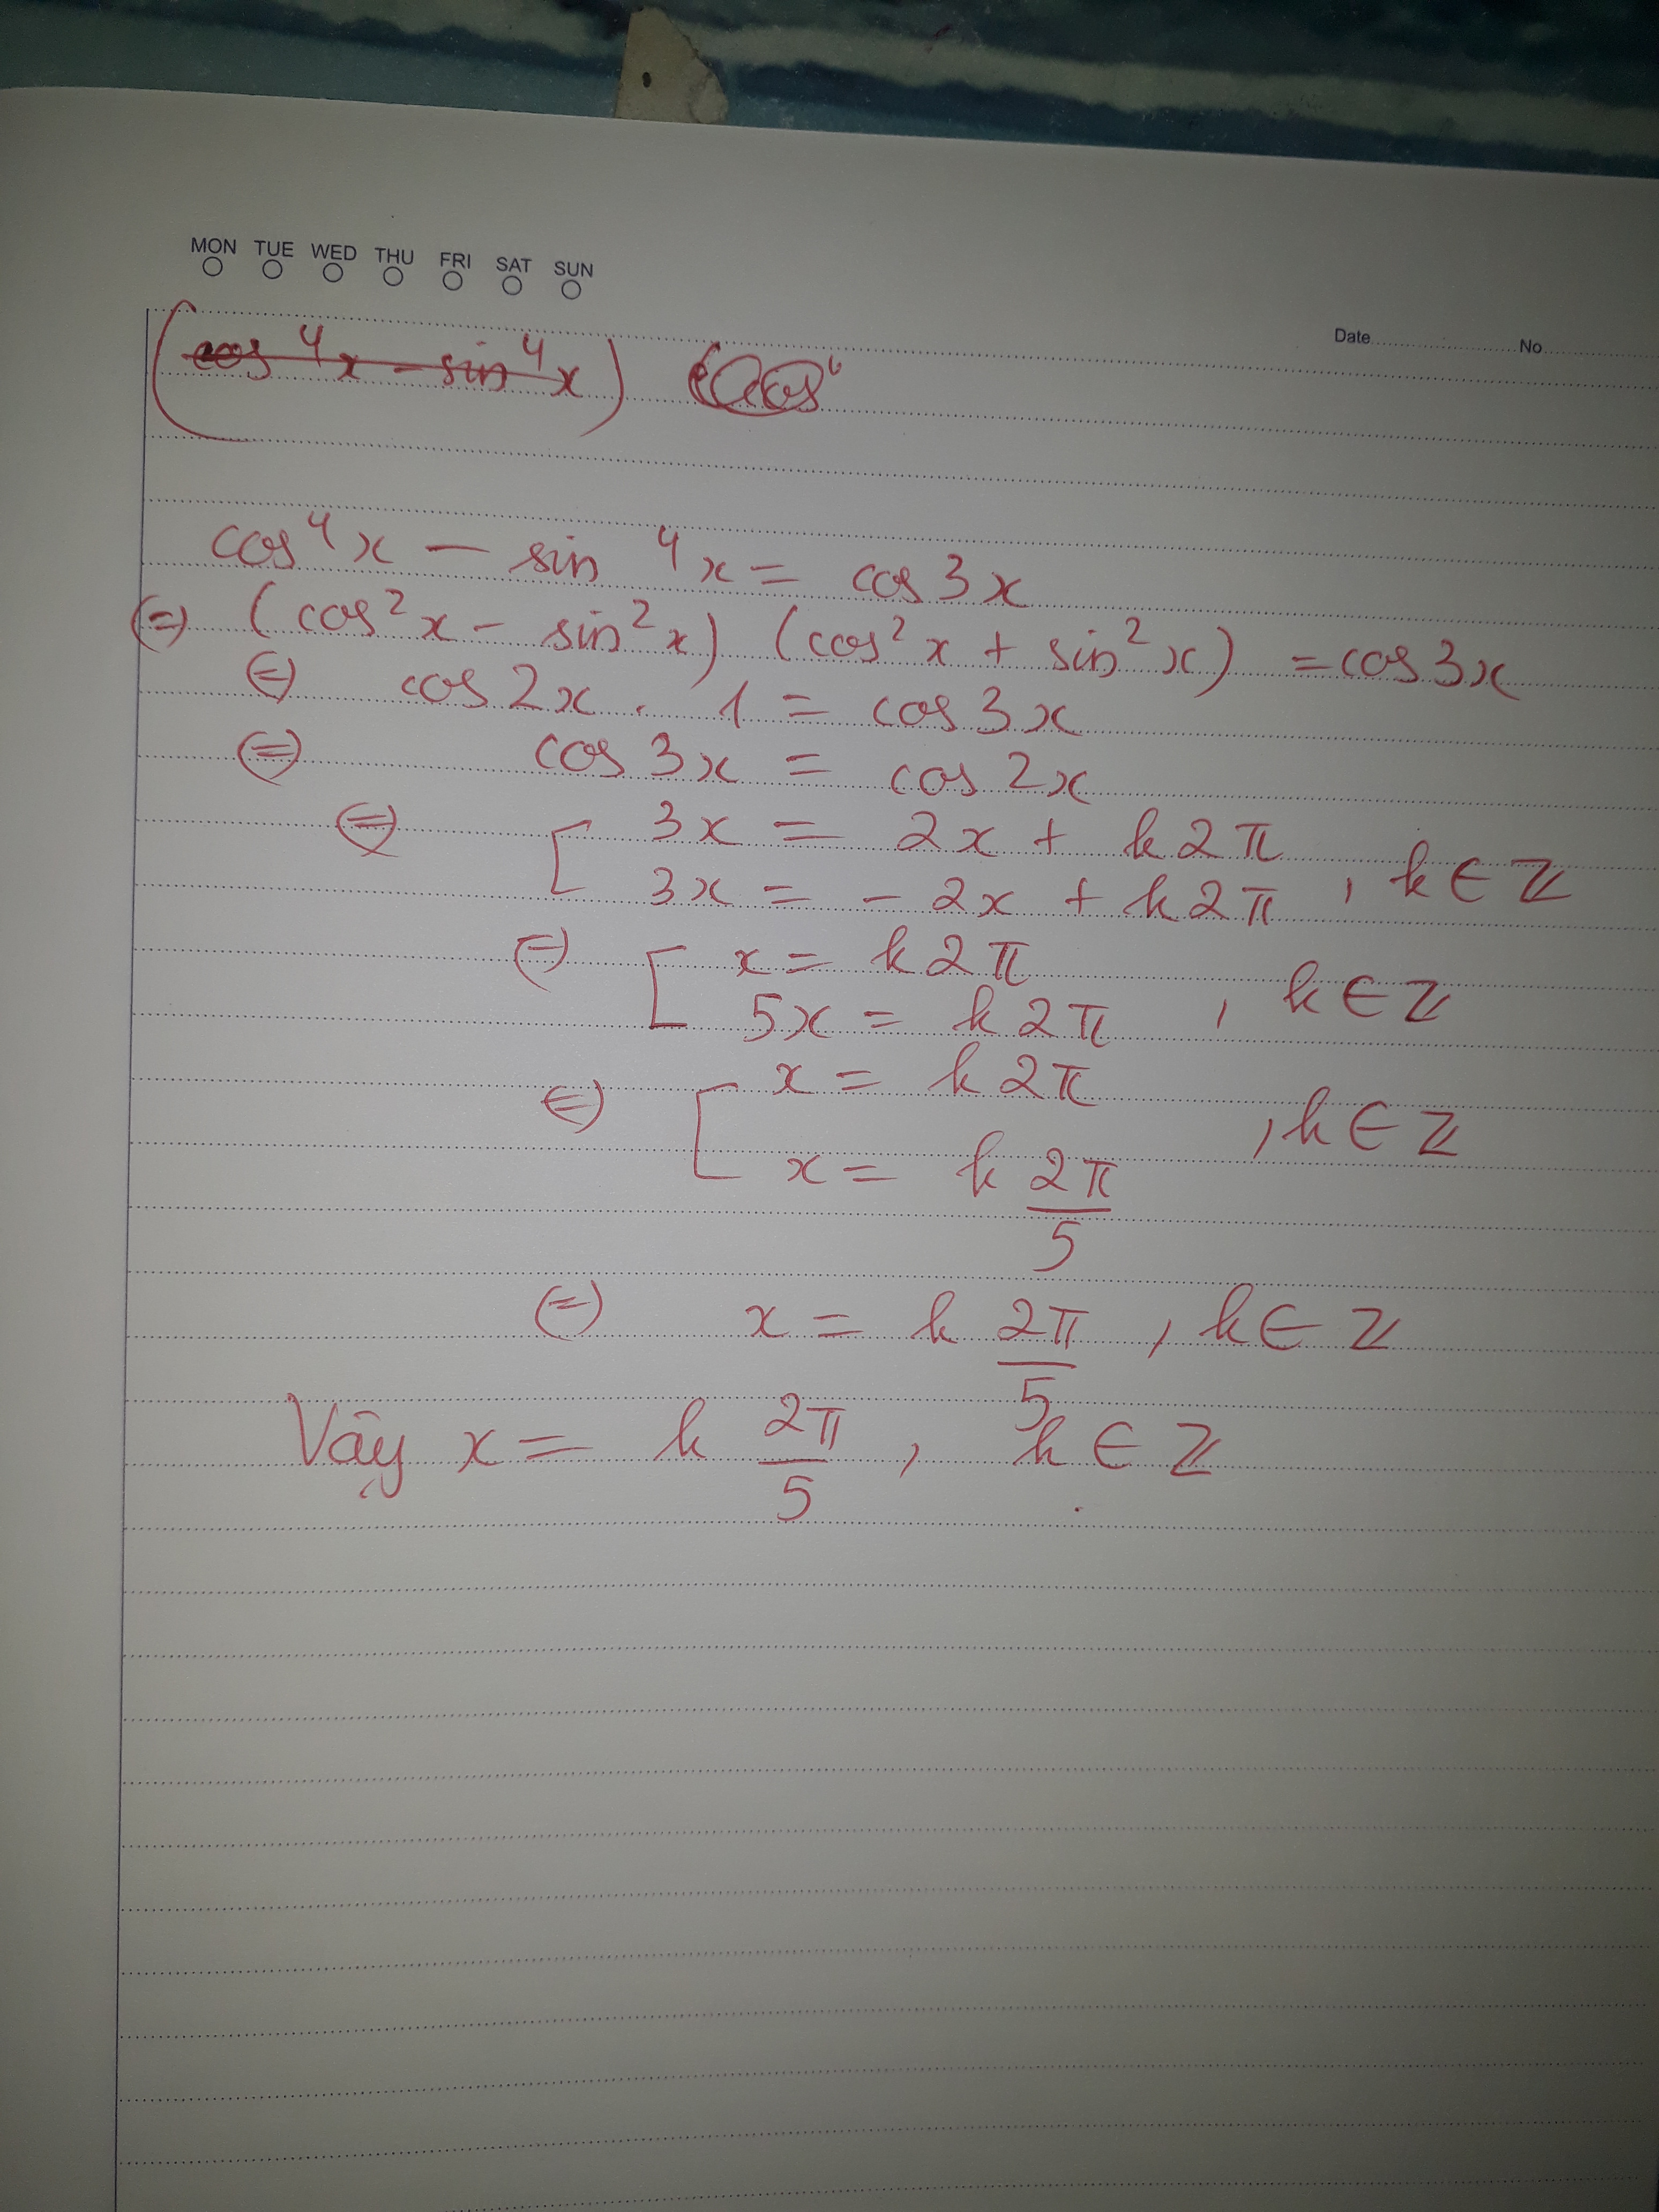 MON TUE WED THU FRI SAT SUN
Date No
(cos⁴x - sin⁴x) (cos⁴
cos⁴x - sin⁴x = cos3x
(=) (cos²x - sin²x) (cos²x + sin²x) = cos3x
(=) cos2x . 1 = cos3x
(=) cos3x = cos2x
(=) [ 3x = 2x + k2π
3x = -2x + k2π , k ∈ Z
(=) [ x = k2π
5x = k2π , k ∈ Z
(=) [ x = k2π
x = k 2π/5 , k ∈ Z
(=) x = k 2π/5 , k ∈ Z
Vậy x = k 2π/5 , k ∈ Z